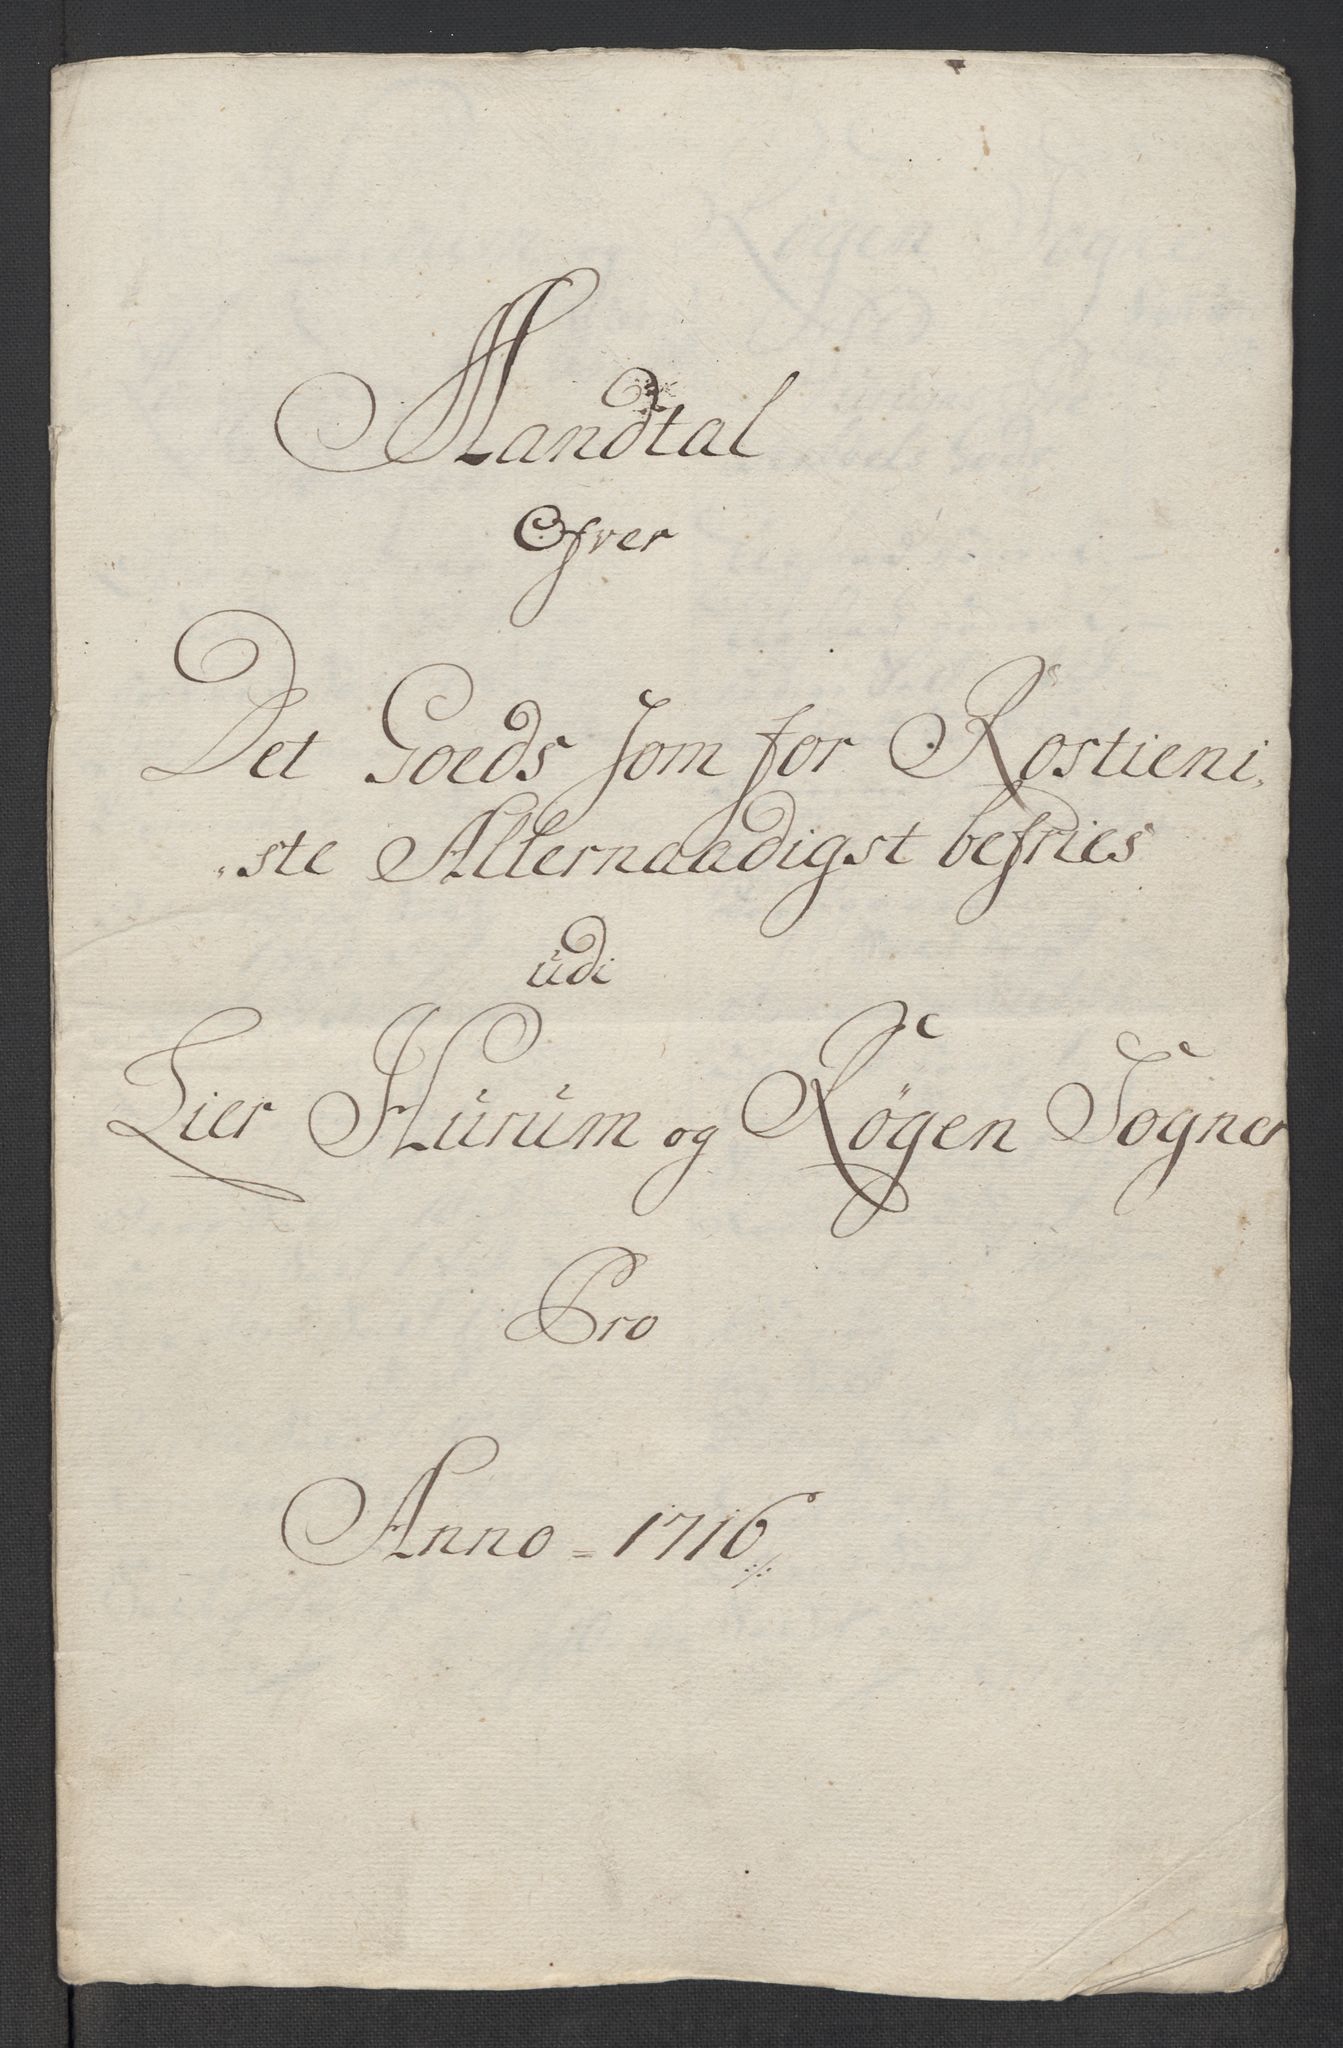 Mandtal
Ofver
Det Goeds som for Rostieni„
„ste Allernaadigst befries
udi
Lier Hurum og Røgen Sogner
Pro
Anno = 1716